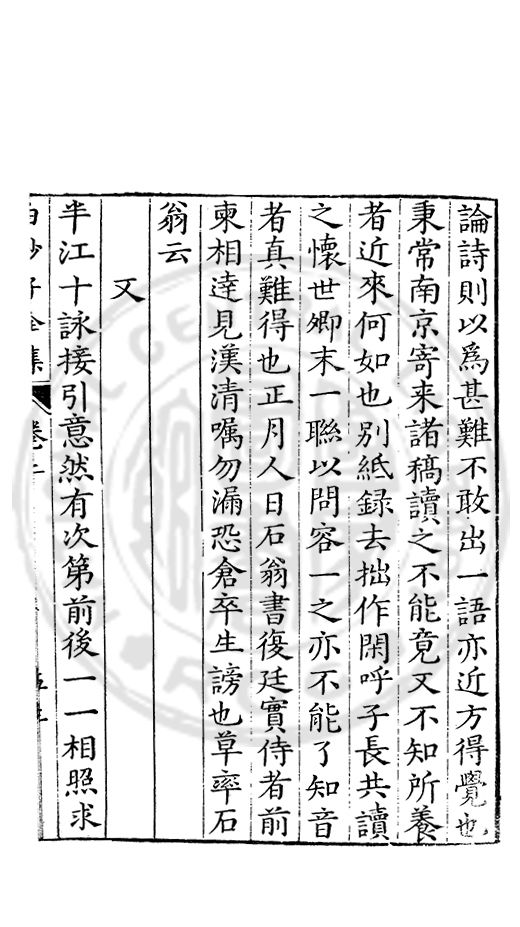 論詩則以爲甚難不敢出一語亦近方得覺也
秉常南京寄来諸稿讀之不能竟又不知所養
者近來何如也别紙録去拙作閑呼子長共讀
之懷世卿末一聯以問容一之亦不能了知音
者真難得也正月人日石翁書復廷實侍者前
柬相逹見漢清囑勿漏恐倉卒生謗也草率石
翁云
又
半江十詠接引意然有次第前後一一相照求
白沙子全集 卷二